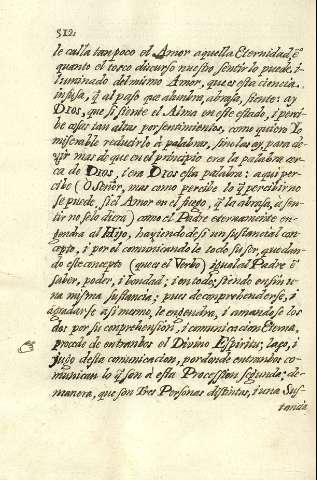 512.
le culta tanpoco el Amor aquella Eternidad, q̃
quanto el torco discurso nuestro sentirlo puede, i-
luminado del mismo Amor, que es esta ciencia
infusa, q̃ al paso que alumbra, abrasa, siente: ay
Dios, que si siente el Alma en este estado, i perci-
be cosas tan altas por sentimientos, como quien
miserable reducirlo à palabras, sino las ay, para de-
zir mas de que en el principio era la palabra cer-
ca de Dios, i era Dios esta palabra: aqui per-
cibe (O Señor, mas como percibe lo q̃ percibir no
se puede, si el Amor en el fuego, q̃ la abrasa, à sen-
tir no se lo diera) como el Padre eternamente en-
gendra al Hijo, haziendo de si un sustancial con-
cepto, i por el comunicandole todo su ser, quedan-
do este concepto (que es el Verbo) igual al Padre ẽ
saber, poder, i bondad; i en todo; siendo en fin u-
na misma sustancia; pues de comprehenderse, i
agradarse asi mismo, le engendra, i amandose los
dos por su comprehension, i comunicacion Eterna,
procede de entrambos el Divino Espiritu; laço, i
jugo desta comunicacion, por donde entrambos co-
munican lo q̃ son à esta Procession segunda; de-
manera, que son Tres Personas distintas, i una Sus-
tancia